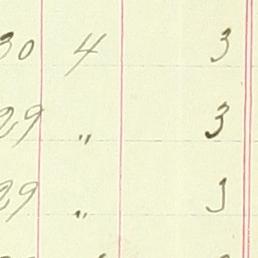 30 4 3
29 " 3
29 " 3